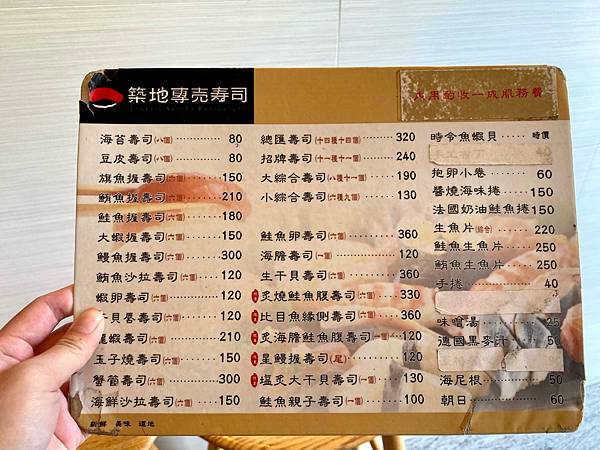 築地專売寿司
內用酌收一成服務費
海苔壽司(八個) 80
豆皮壽司(八個) 80
旗魚握壽司(六個) 150
鮪魚握壽司(六個) 210
鮭魚握壽司(六個) 180
大蝦握壽司(六個) 150
鰻魚握壽司(六個) 300
鮪魚沙拉壽司(六個) 120
蝦卵壽司(六個) 120
干貝唇壽司(六個) 120
龍蝦壽司(六個) 210
玉子燒壽司(六個) 150
蟹管壽司(六個) 300
海鮮沙拉壽司(六個) 150
總匯壽司(十四種十四個) 320
招牌壽司(十一種十一個) 240
大綜合壽司(八種十一個) 190
小綜合壽司(六種九個) 130
鮭魚卵壽司(六個) 360
海膽壽司(一個) 120
生干貝壽司(六個) 360
炙燒鮭魚腹壽司(六個) 330
比目魚緣側壽司(六個) 360
炙海膽鮭魚腹壽司(一個) 120
星鰻握壽司(尾) 120
塩炙大干貝壽司(一個) 130
鮭魚親子壽司(一個) 100
時令魚蝦貝 時價
抱卵小卷 60
醬燒海味捲 150
法國奶油鮭魚捲 150
生魚片(綜合) 220
鮭魚生魚片 250
鮪魚生魚片 250
手捲 40
味噌湯 25
德國黑麥汁 50
海尼根 50
朝日 60
新鮮 美味 道地